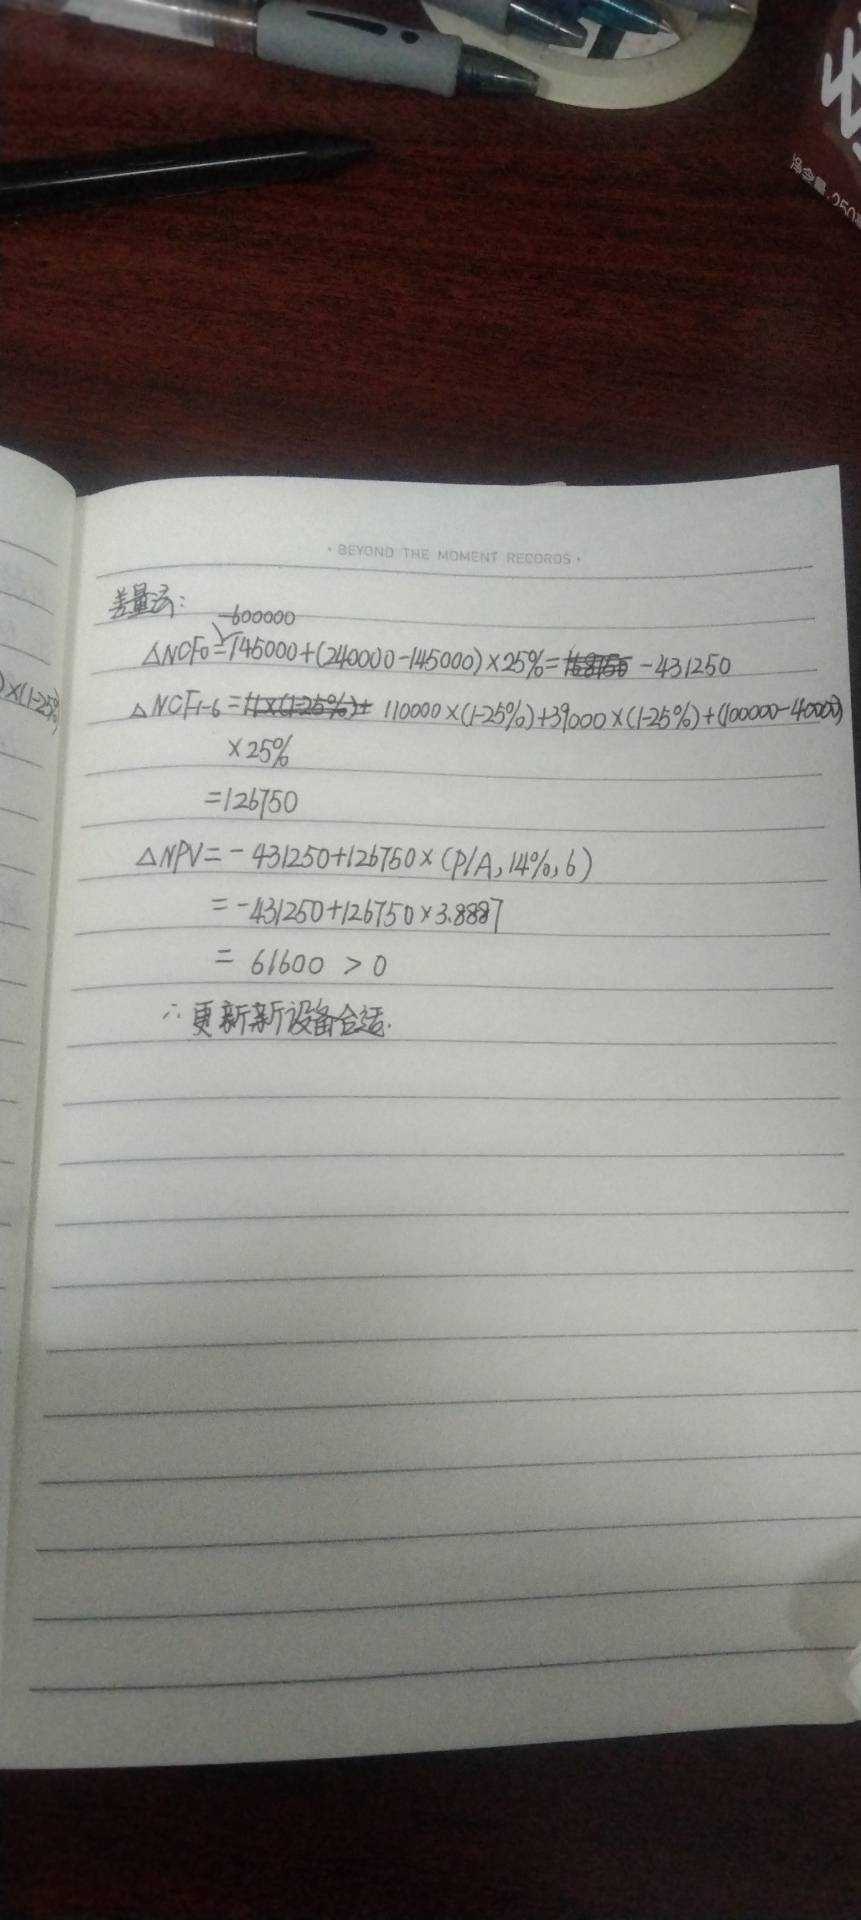 净含量:250
· BEYOND THE MOMENT RECORDS ·
差量法:
-600000
△NCF₀=145000+(240000-145000)×25%=168750 -431250
)×(1-25%)
△NCF₁₋₆=11×(1-25%)+ 110000×(1-25%)+39000×(1-25%)+(100000-40000)
×25%
=126750
△NPV=-431250+126750×(P/A,14%,6)
=-431250+126750×3.8887
= 61600 >0
∴更新新设备合适.